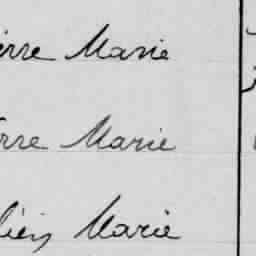 erre Marie
erre Marie
lien Marie